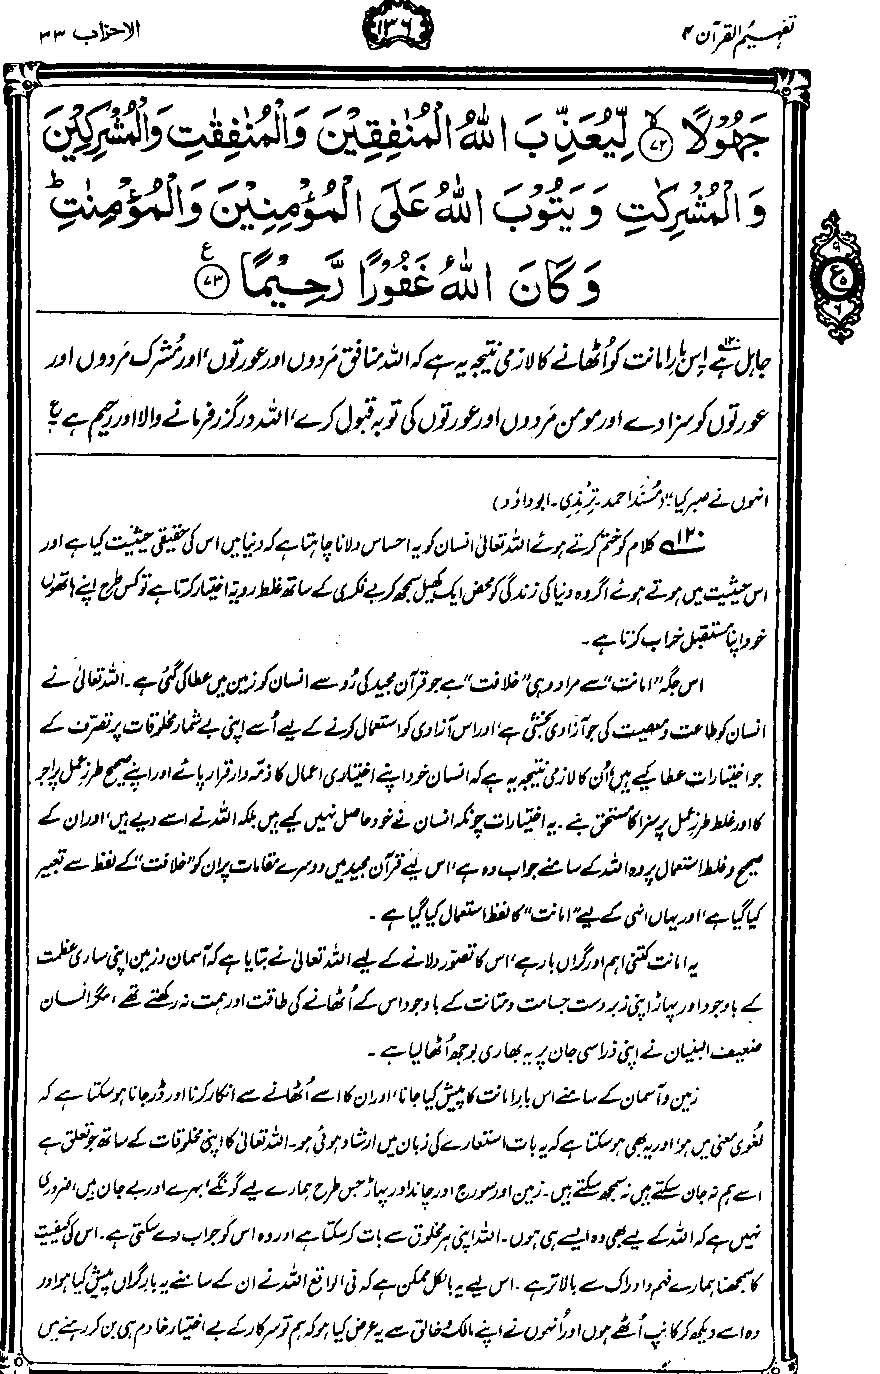 تفہیم القرآن ۴
۱۳۶
الاحزاب ۳۳
جَهُوْلًا ﴿۷۲﴾ۙ لِّيُعَذِّبَ اللّٰهُ الْمُنٰفِقِيْنَ وَالْمُنٰفِقٰتِ وَالْمُشْرِكِيْنَ
وَالْمُشْرِكٰتِ وَيَتُوْبَ اللّٰهُ عَلَى الْمُؤْمِنِيْنَ وَالْمُؤْمِنٰتِ ؕ
وَكَانَ اللّٰهُ غَفُوْرًا رَّحِيْمًا ﴿۷۳﴾ ع
۹
ع ۵
۶
جاہل ہے۔۱۲۰ اِس بارِ امانت کو اُٹھانے کا لازمی نتیجہ یہ ہے کہ اللہ منافق مَردوں اور عورتوں، اور مُشرک مَردوں اور
عورتوں کو سزا دے اور مومن مَردوں اور عورتوں کی توبہ قبول کرے، اللہ درگزر فرمانے والا اور رحیم ہے ؏
انہوں نے صبر کیا" (مُسند احمد۔ ترمذی۔ ابوداؤد)
۱۲۰ے کلام کو ختم کرتے ہوئے اللہ تعالیٰ انسان کو یہ احساس دلانا چاہتا ہے کہ دنیا میں اس کی حقیقی حیثیت کیا ہے اور
اس حیثیت میں ہوتے ہوئے اگر وہ دنیا کی زندگی کو محض ایک کھیل سمجھ کر بے فکری کے ساتھ غلط رویّہ اختیار کرتا ہے تو کس طرح اپنے ہاتھوں
خود اپنا مستقبل خراب کرتا ہے۔
اس جگہ "امانت" سے مراد وہی "خلافت" ہے جو قرآن مجید کی رُو سے انسان کو زمین میں عطا کی گئی ہے۔ اللہ تعالیٰ نے
انسان کو طاعت و معصیت کی جو آزادی بخشی ہے، اور اس آزادی کو استعمال کرنے کے لیے اُسے اپنی بے شمار مخلوقات پر تصرّف کے
جو اختیارات عطا کیے ہیں، اُن کا لازمی نتیجہ یہ ہے کہ انسان خود اپنے اختیاری اعمال کا ذمّہ دار قرار پائے اور اپنے صحیح طرزِ عمل پر اجر
کا اور غلط طرزِ عمل پر سزا کا مستحق بنے۔ یہ اختیارات چونکہ انسان نے خود حاصل نہیں کیے ہیں بلکہ اللہ نے اسے دیے ہیں، اور ان کے
صحیح و غلط استعمال پر وہ اللہ کے سامنے جواب دہ ہے، اس لیے قرآن مجید میں دوسرے مقامات پر ان کو "خلافت" کے لفظ سے تعبیر
کیا گیا ہے، اور یہاں انہی کے لیے "امانت" کا لفظ استعمال کیا گیا ہے۔
یہ امانت کتنی اہم اور گراں بار ہے، اس کا تصوّر دلانے کے لیے اللہ تعالیٰ نے بتایا ہے کہ آسمان و زمین اپنی ساری عظمت
کے باوجود اور پہاڑ اپنی زبردست جسامت و متانت کے باوجود اس کے اُٹھانے کی طاقت اور ہمت نہ رکھتے تھے، مگر انسان
ضعیف البنیان نے اپنی ذرا سی جان پر یہ بھاری بوجھ اُٹھا لیا ہے۔
زمین و آسمان کے سامنے اس بارِ امانت کا پیش کیا جانا، اور ان کا اسے اُٹھانے سے انکار کرنا اور ڈر جانا ہو سکتا ہے کہ
لُغوی معنی میں ہو، اور یہ بھی ہو سکتا ہے کہ یہ بات استعارے کی زبان میں ارشاد ہوئی ہو۔ اللہ تعالیٰ کا اپنی مخلوقات کے ساتھ جو تعلق ہے
اسے ہم نہ جان سکتے ہیں نہ سمجھ سکتے ہیں۔ زمین اور سورج اور چاند اور پہاڑ جس طرح ہمارے لیے گونگے، بہرے اور بے جان ہیں، ضروری
نہیں ہے کہ اللہ کے لیے بھی وہ ایسے ہی ہوں۔ اللہ اپنی ہر مخلوق سے بات کر سکتا ہے اور وہ اس کو جواب دے سکتی ہے۔ اس کی کیفیت
کا سمجھنا ہمارے فہم و ادراک سے بالاتر ہے۔ اس لیے یہ بالکل ممکن ہے کہ فی الواقع اللہ نے ان کے سامنے یہ بارِ گراں پیش کیا ہو اور
وہ اسے دیکھ کر کانپ اُٹھے ہوں اور اُنہوں نے اپنے مالک و خالق سے یہ عرض کیا ہو کہ ہم تو سرکار کے بے اختیار خادم ہی بن کر رہنے میں